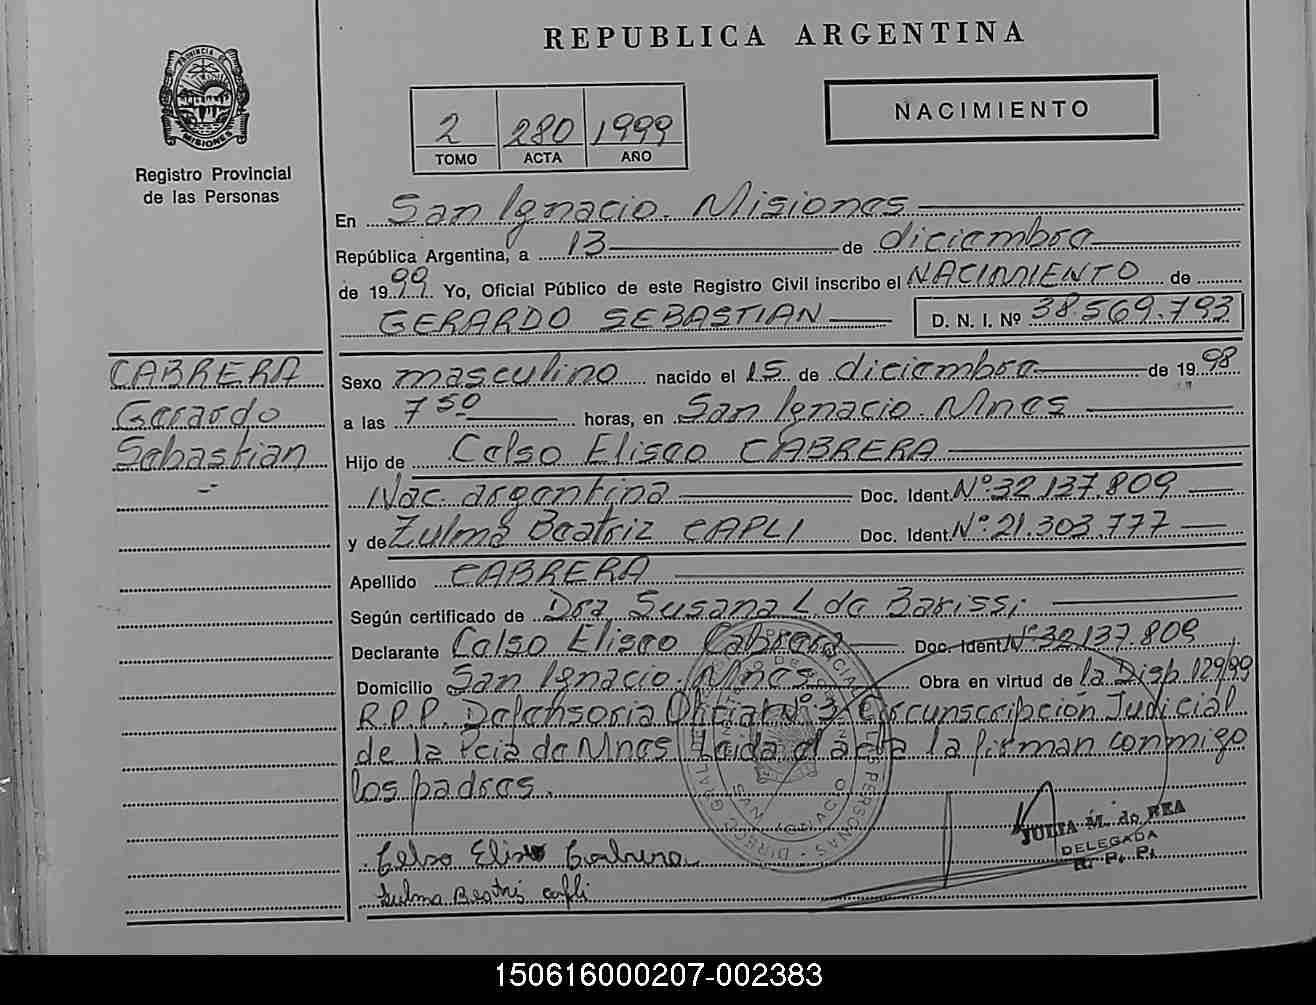 REPUBLICA ARGENTINA
PROVINCIA DE
MISIONES
Registro Provincial
de las Personas
2 280 1999
TOMO ACTA AÑO
NACIMIENTO
En San Ignacio. Misiones
República Argentina, a 13 de diciembre
de 1999 Yo, Oficial Público de este Registro Civil inscribo el NACIMIENTO de
GERARDO SEBASTIAN D. N. I. Nº 38.569.793
CABRERA
Gerardo
Sebastian
Sexo masculino nacido el 15 de diciembre de 1998
a las 7 50 horas, en San Ignacio. Mnes
Hijo de Celso Eliseo CABRERA
Nac. argentina Doc. Ident. Nº 32.137.809
y de Zulma Beatriz CAPLI Doc. Ident. Nº 21.303.777
Apellido CABRERA
Según certificado de Dra Susana L. de Barissi
Declarante Celso Eliseo Cabrera Doc. Ident. Nº 32137.809
Domicilio San Ignacio. Mnes Obra en virtud de la Disp. 129/99
R.P.P. Defensoria Oficial Nº 3 Circunscripción Judicial
de la Pcia de Mnes. Leida el acta la firman conmigo
los padres.
Celso Eliseo Cabrera
Zulma Beatriz Capli
JULIA M. de REA
DELEGADA
R. P. P.
150616000207-002383